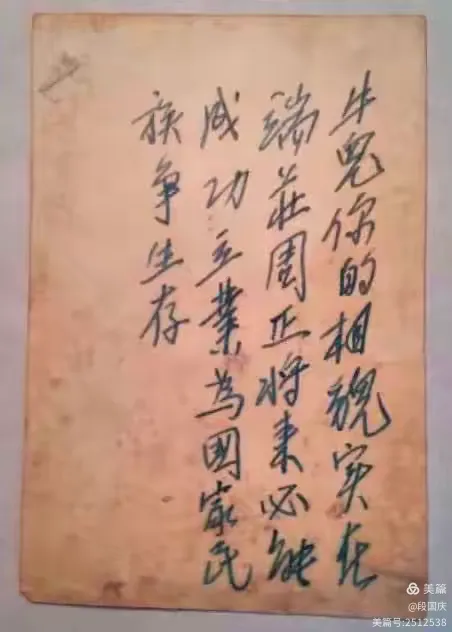 牛兒你的相貌实在
端莊周正将来必能
成功立業為國家民
族争生存
美篇
@段国庆
美篇号:2512538